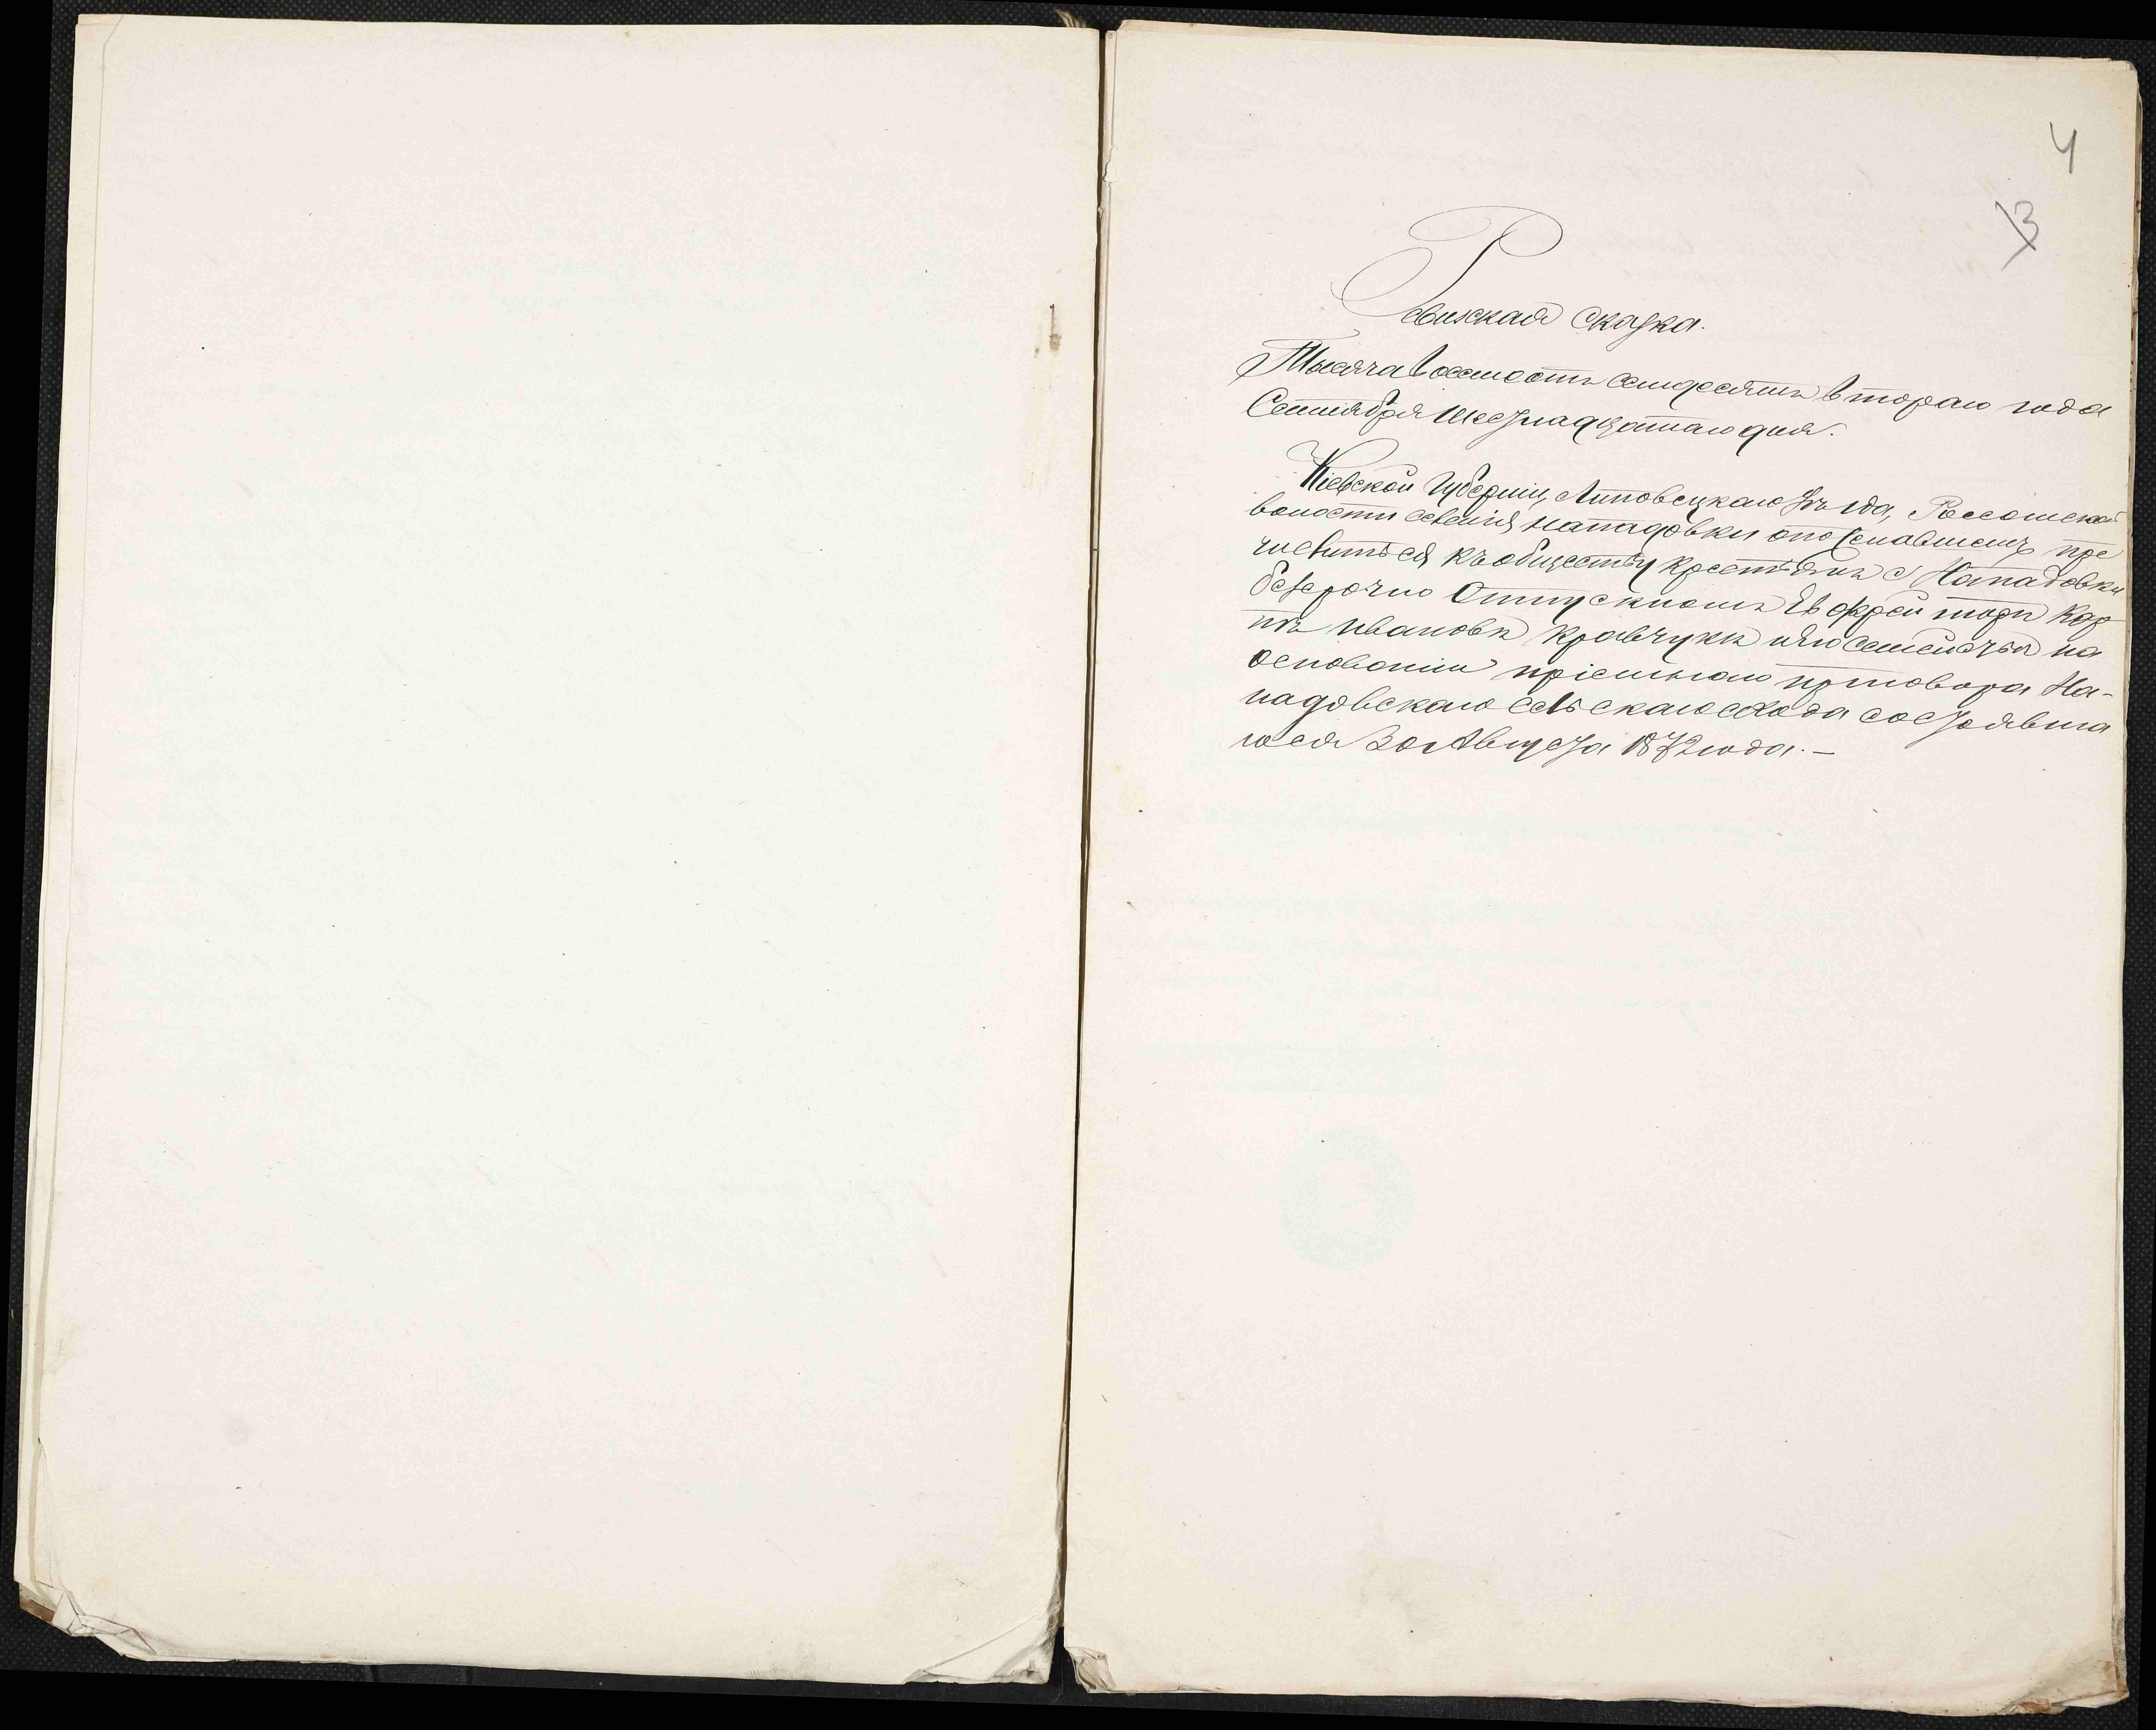 4
3
Ревизкая сказка.
Тысяча Восемсотъ семдесятъ втораго года
Сентября шеснадцатаго дня.
Кіевской Губерніи, Липовецкаго уѣзда, Россошской
волости селенія Нападовки о пре
числиться къ обществу крестьянъ с Нападовки
безсрочно Отпускномъ Ефрейторѣ Кар
пѣ Ивановѣ Кравчукѣ и его семействѣ на
основаніи пріемнаго приговора На-
падовскаго сельскаго схода состоявша
гося 30 Августа 1872 года. —